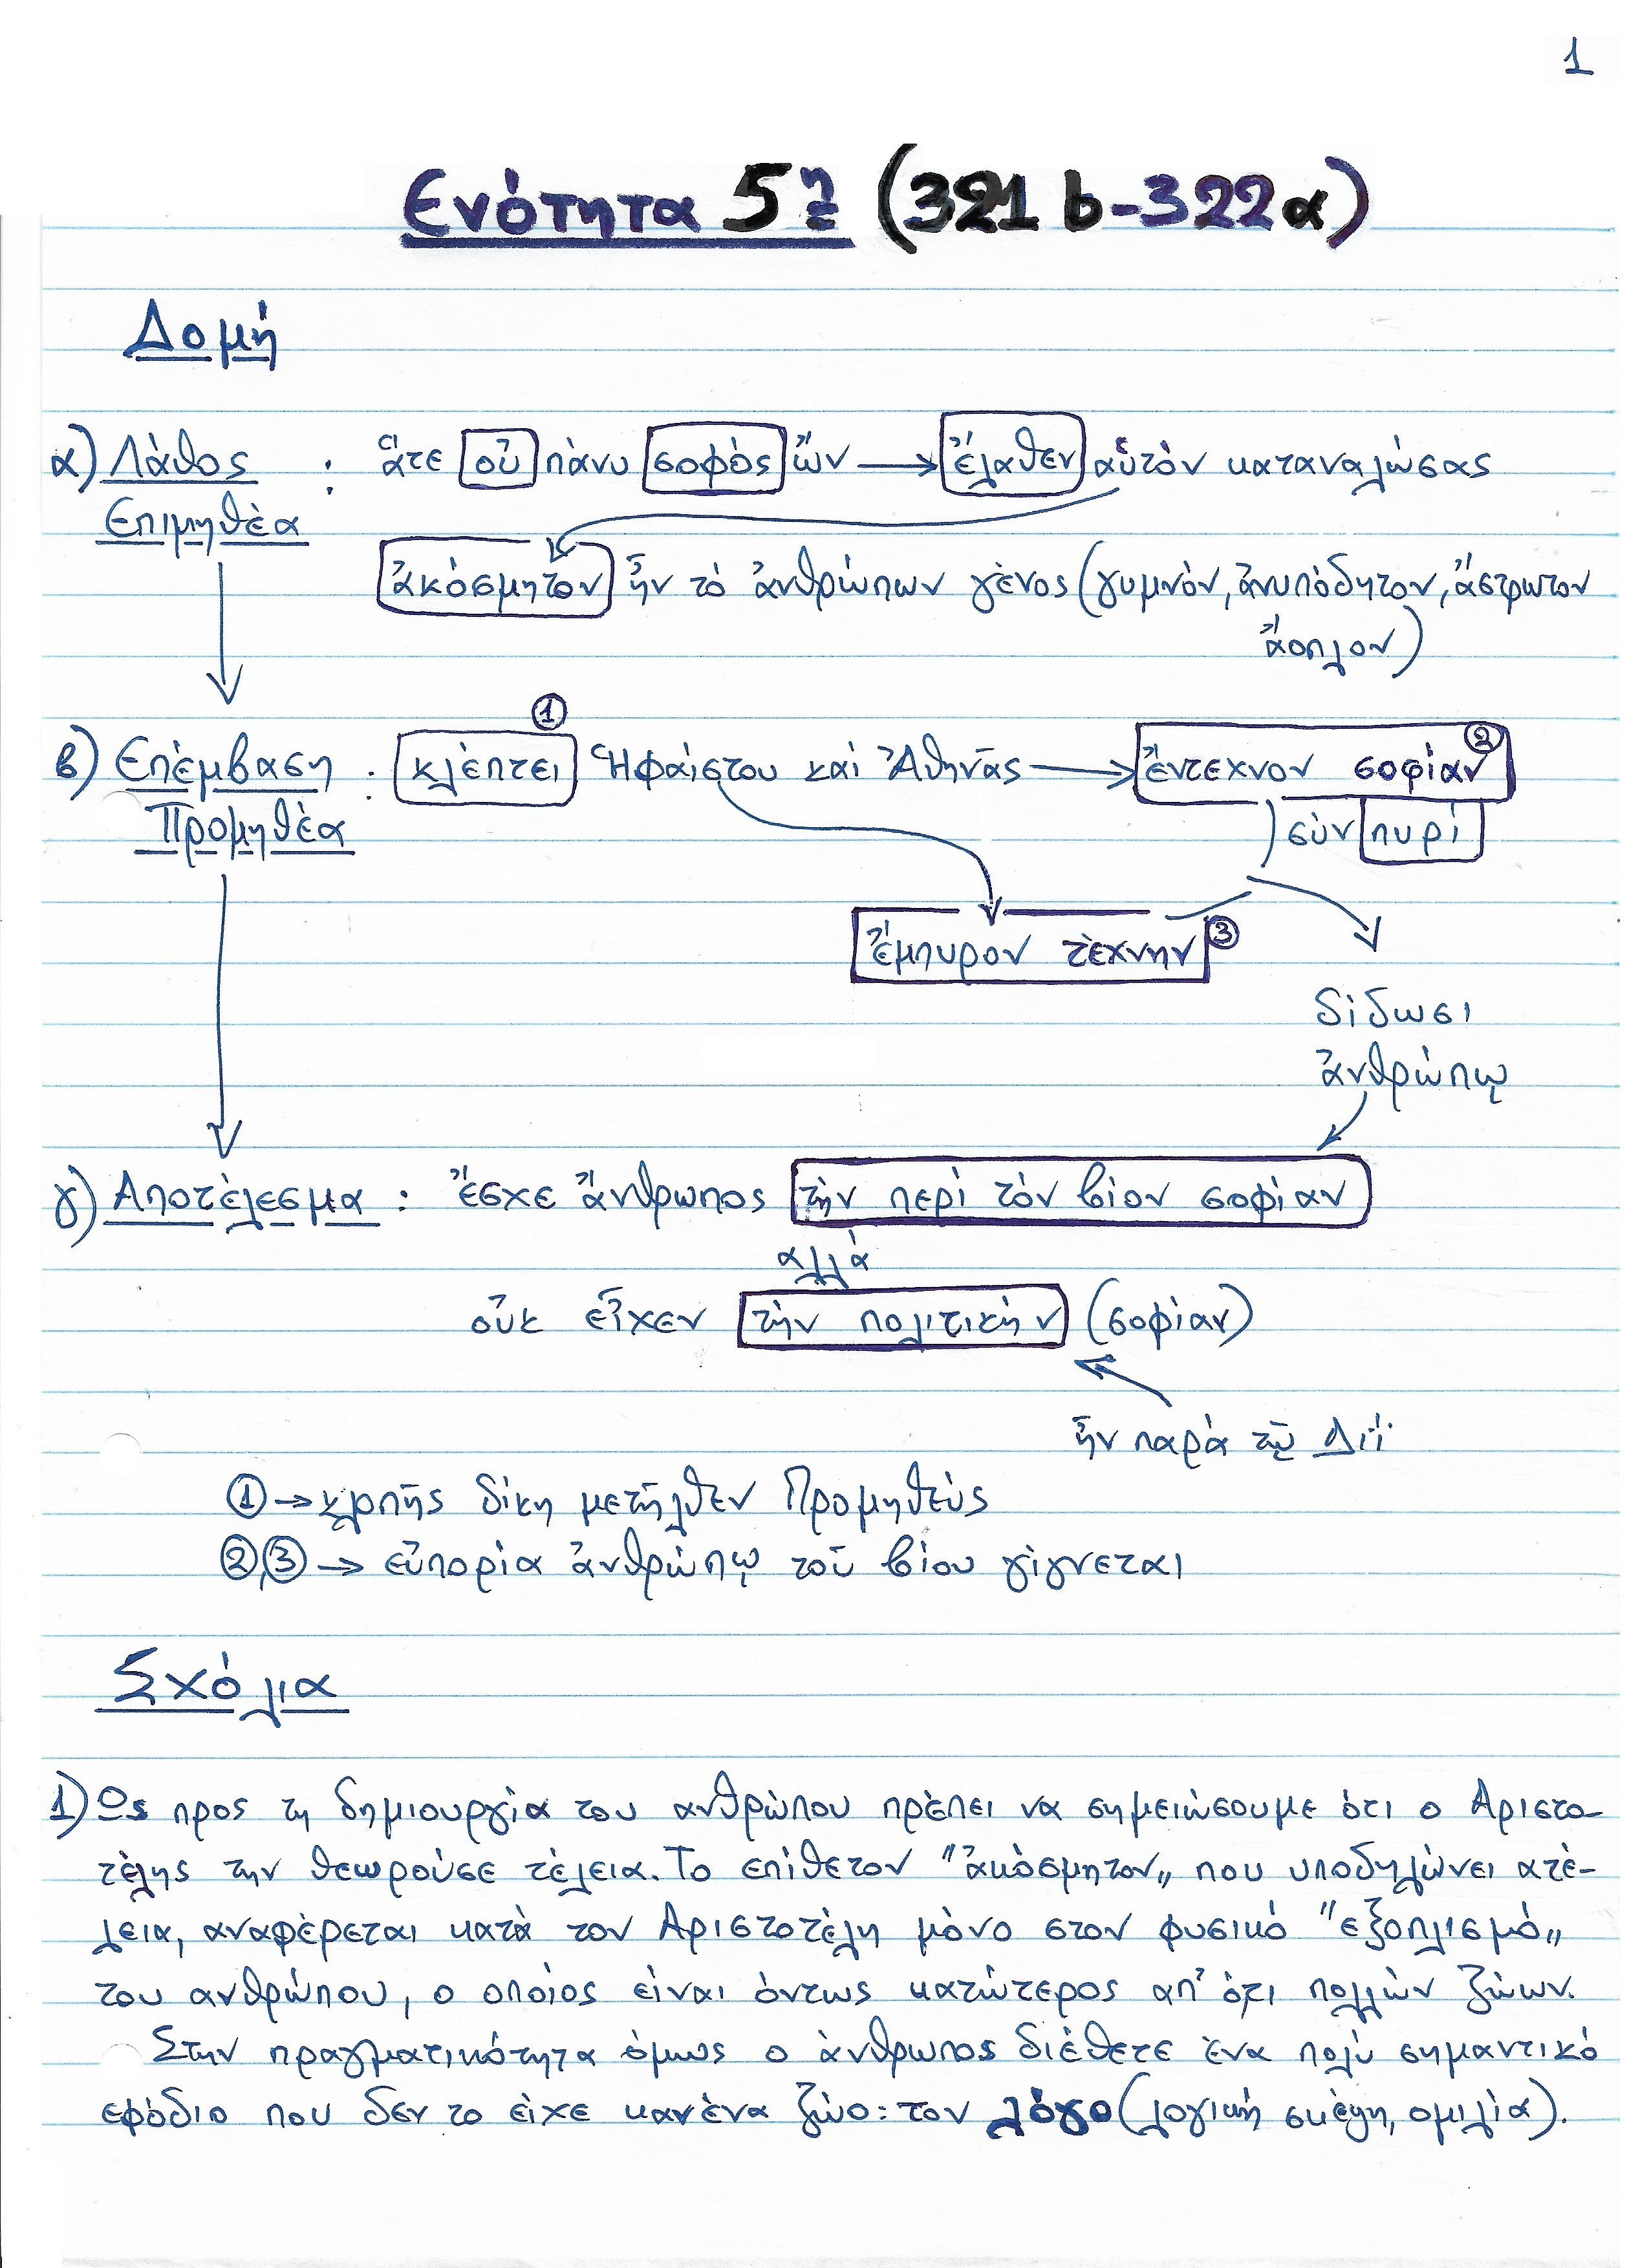 1
Ενότητα 5η (321 b-322α)
Δομή
α) Λάθος : ἅτε οὐ πάνυ σοφὸς ὤν → ἔλαθεν αὑτὸν καταναλώσας
Επιμηθέα
ἀκόσμητον ἦν τὸ ἀνθρώπων γένος (γυμνόν, ἀνυπόδητον, ἄστρωτον
ἄοπλον)
①
β) Επέμβαση : κλέπτει Ἡφαίστου καί Ἀθηνᾶς → ἔντεχνον σοφίαν ②
Προμηθέα
) σὺν πυρί
ἔμπυρον τέχνην ③
δίδωσι
ἀνθρώπῳ
γ) Αποτέλεσμα : ἔσχε ἄνθρωπος τὴν περί τὸν βίον σοφίαν
αλλά
οὐκ εἶχεν τὴν πολιτικήν (σοφίαν)
ἦν παρὰ τῷ Διί
① → κλοπῆς δίκη μετῆλθεν Προμηθεύς
②,③ → εὐπορία ἀνθρώπῳ τοῦ βίου γίγνεται
Σχόλια
1) Ως προς τη δημιουργία του ανθρώπου πρέπει να σημειώσουμε ότι ο Αριστο-
τέλης την θεωρούσε τέλεια. Το επίθετον "ἀκόσμητον„ που υποδηλώνει ατέ-
λεια, αναφέρεται κατά τον Αριστοτέλη μόνο στον φυσικό "εξοπλισμό„
του ανθρώπου, ο οποίος είναι όντως κατώτερος απ' ό,τι πολλών ζώων.
Στην πραγματικότητα όμως ο άνθρωπος διέθετε ένα πολύ σημαντικό
εφόδιο που δεν το είχε κανένα ζώο: τον λόγο (λογική σκέψη, ομιλία).